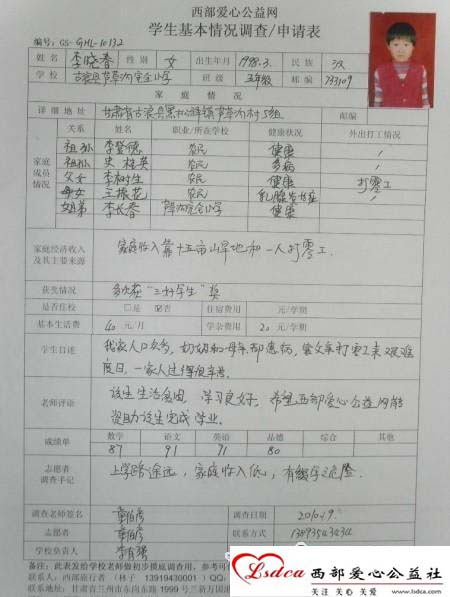 西部爱心公益网
学生基本情况调查/申请表
编号: GS-GHL-10132
姓名 李晓春 性别 女 出生年月 1998.3. 民族 汉
学校 古浪县 完全小学 班级 五年级 邮编 733109
家庭情况
详细地址 甘肃省古浪县黑松驿镇 村5组 邮编
关系 姓名 职业/所在学校 健康状况 外出打工情况
家庭成员情况
祖孙 李 德 农民 健康 /
祖孙 史桂英 农民 多病 /
父女 李树生 农民 健康 打零工
母女 王振花 农民 乳腺 /
姐弟 李长春 完全小学 健康
家庭经济收入及其主要来源 家庭收入靠十五亩山旱地和一人打零工
获奖情况 多次获"三好学生"奖
是否住校 □是 否 住宿费用 元/学期
基本生活费 40 元/月 学杂费用 20 元/学期
学生自述 我家人口众多,奶奶和母亲都患病,靠父亲打零工来艰难
度日,一家人过得很辛苦。
老师评语 该生生活贫困,学习良好,希望西部爱心公益网能
资助该生完成学业。
成绩单 数学 语文 英语 品德 综合 其他
87 91 71 80
志愿者调查手记 上学路途远,家庭收入低,有辍学危险
调查老师签名 调查日期
志愿者 联系方式
学校负责人
备注:此表发给学校老师做初步摸底调查用,
联系人:西部旅行者 (林子 13919430001)
地址:甘肃省兰州市东岗东路1999号三新万国
Lsdca 西部爱心公益社
关注 关心 关爱